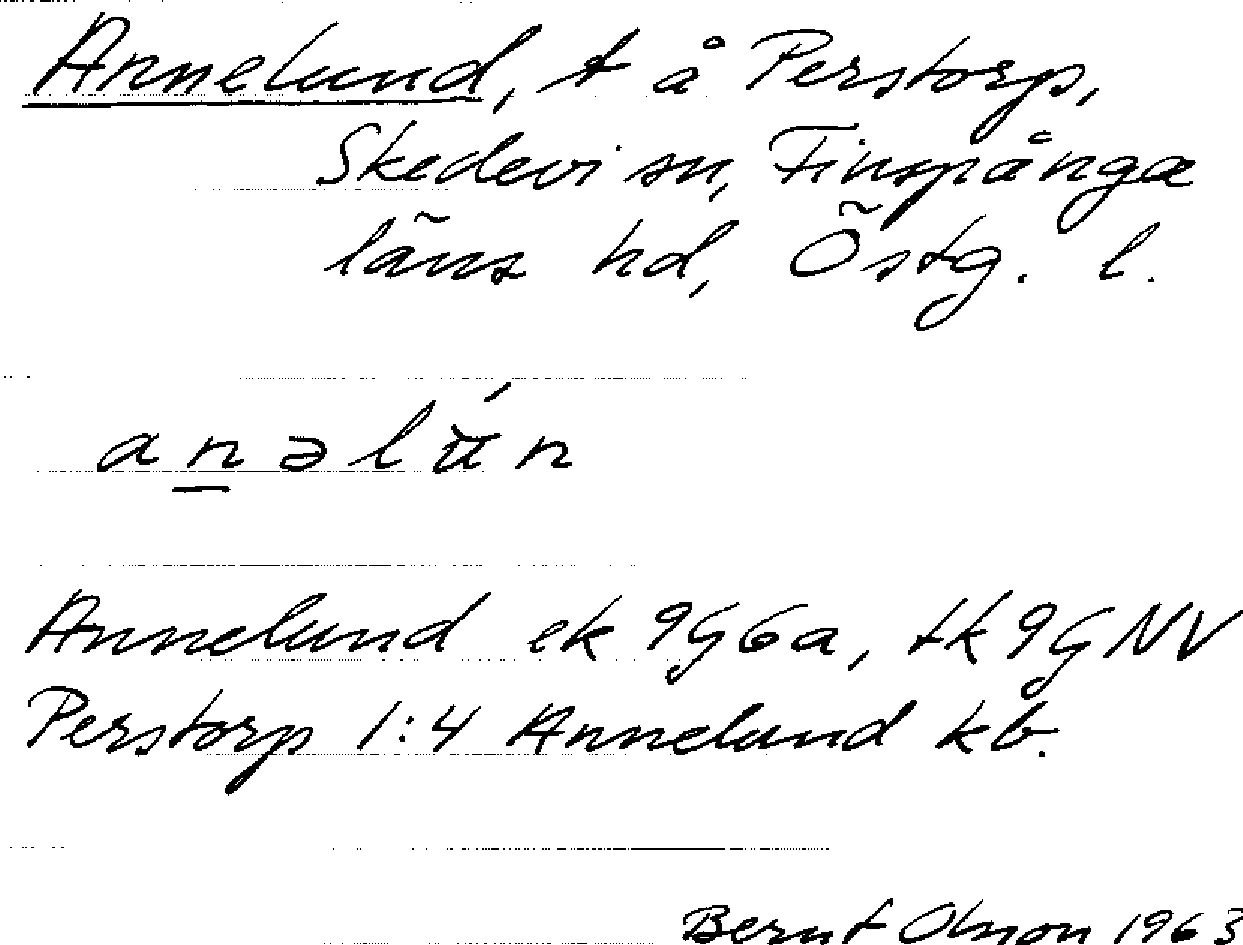 Annelund, t å Perstorp,
Skedevi sn, Finspånga
läns hd, Östg. l.
a n ə l ú n
Annelund ek 9G6a, tk 9G NV
Perstorp 1:4 Annelund kb.
Bernt Olsson 1963